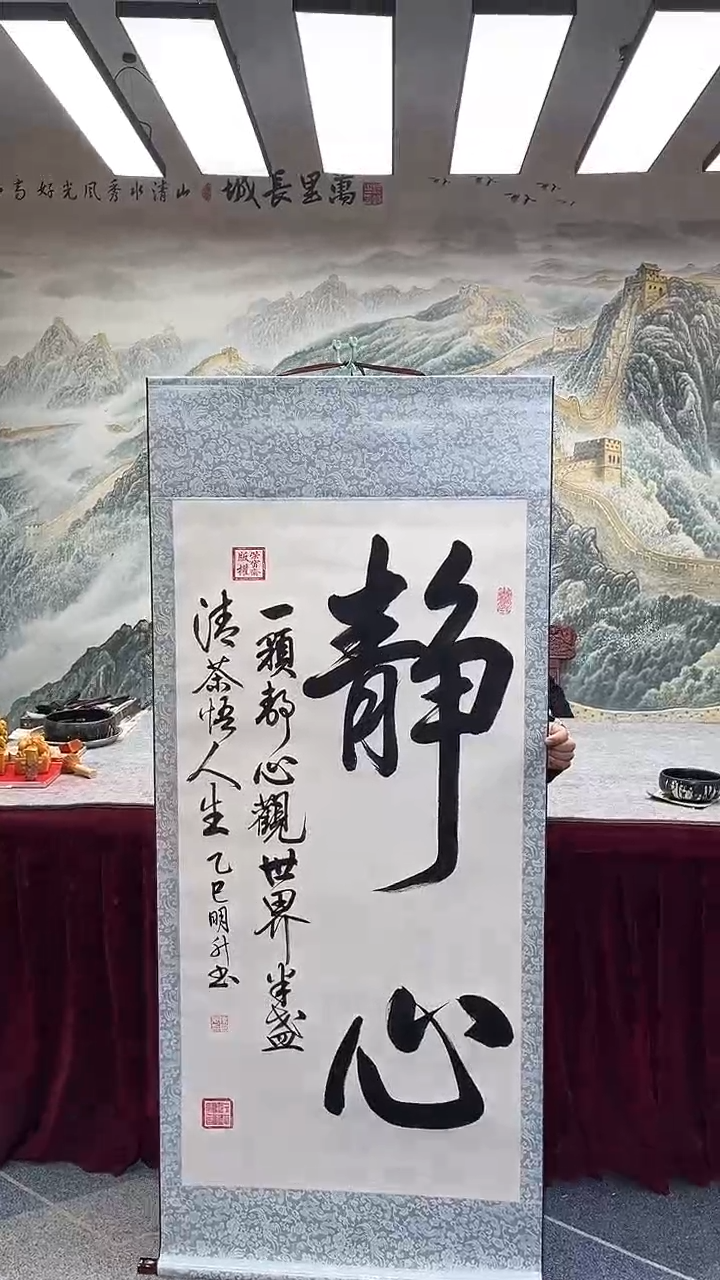 萬里長城
山清水秀风光好
静心
一顆静心觀世界半盏
清茶悟人生乙巳明升书
版權